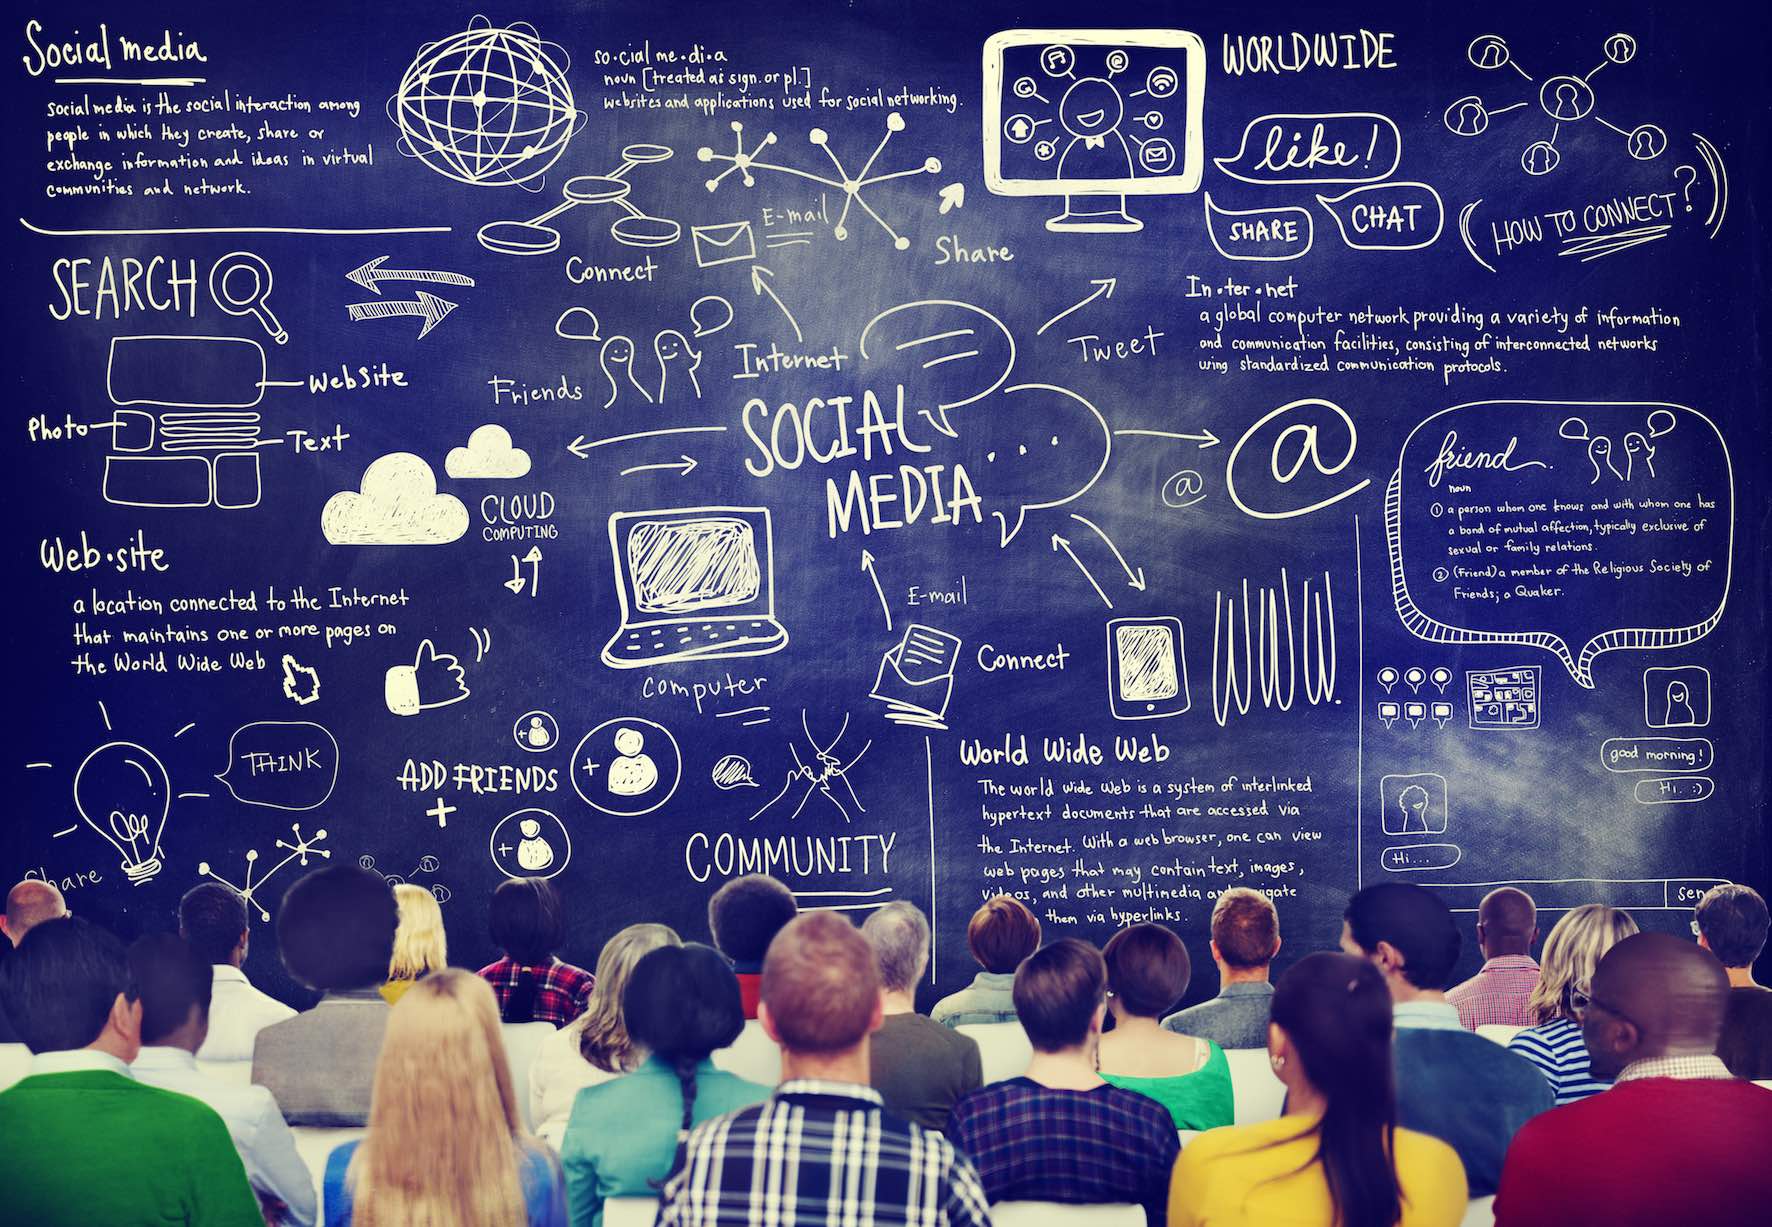 Social media
social media is the social interaction among
people in which they create, share or
exchange information and ideas in virtual
communities and network.
so·cial me·di·a
noun [treated as sign. or pl.]
websites and applications used for social networking.
WORLDWIDE
like!
SHARE
CHAT
HOW TO CONNECT?
E-mail
Share
Connect
SEARCH
Website
Photo
Text
Friends
Internet
Tweet
In·ter·net
a global computer network providing a variety of information
and communication facilities, consisting of interconnected networks
using standardized communication protocols.
SOCIAL
MEDIA
@
@
CLOUD
COMPUTING
friend.
noun
1 a person whom one knows and with whom one has
a bond of mutual affection, typically exclusive of
sexual or family relations.
2 (Friend) a member of the Religious Society of
Friends; a Quaker.
Web·site
a location connected to the Internet
that maintains one or more pages on
the World Wide Web
Computer
E-mail
Connect
WWW.
THINK
ADD FRIENDS
+
+
+
+
COMMUNITY
World Wide Web
The world wide web is a system of interlinked
hypertext documents that are accessed via
the Internet. With a web browser, one can view
web pages that may contain text, images,
videos, and other multimedia and
them via hyperlinks.
good morning!
Hi. :)
Hi...
Share